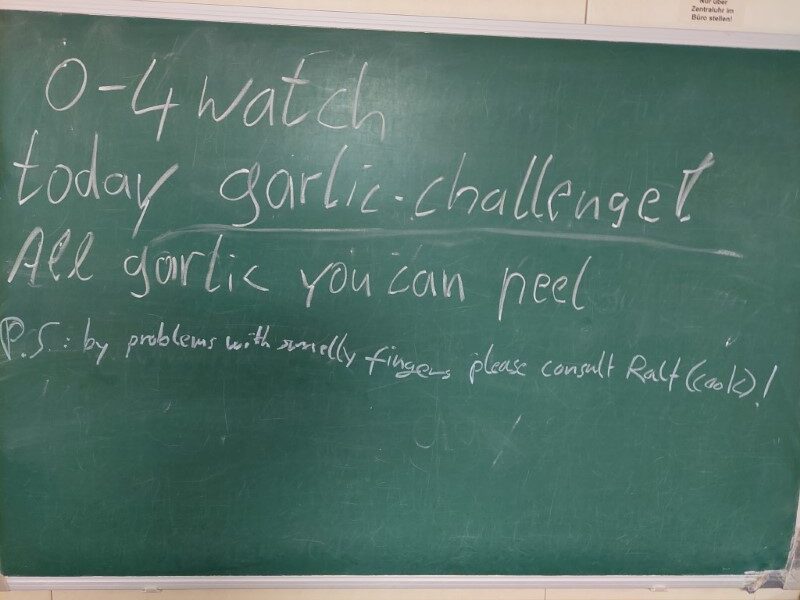 Nur über
Zentraluhr im
Büro stellen!
0-4 watch
today garlic-challenge!
All garlic you can peel
P.S.: by problems with smelly fingers please consult Ralf (cook)!